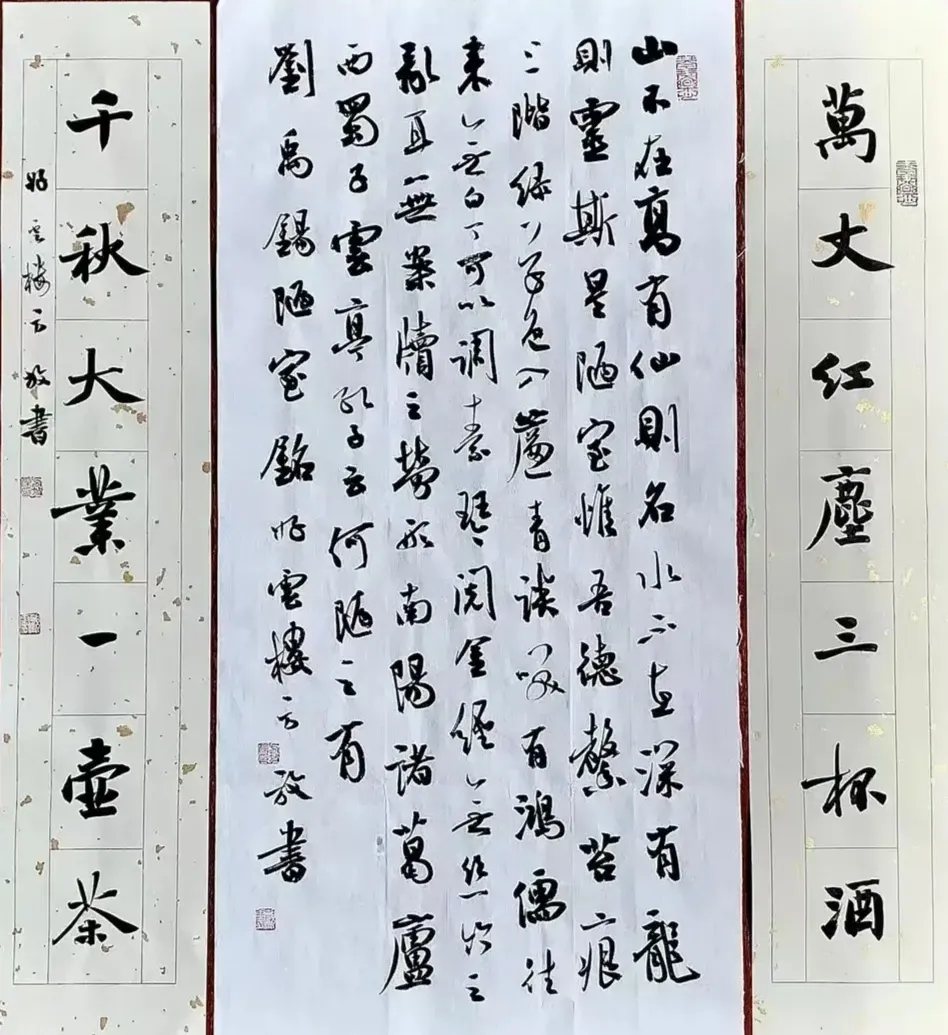 萬丈红塵三杯酒
山不在高有仙則名水不在深有龍
則靈斯是陋室惟吾德馨苔痕
上階綠草色入簾青談笑有鴻儒往
來無白丁可以調素琴閱金經無絲竹之
亂耳無案牘之勞形南陽諸葛廬
西蜀子雲亭孔子云何陋之有
劉禹錫陋室銘好雲樓方放書
千秋大業一壺茶
好雲樓方放書